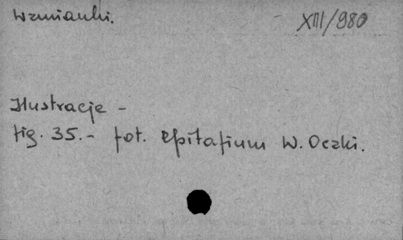 Wzmianki.
XIII/980
Ilustracje -
fig. 35.- fot. epitafium W. Oczki.